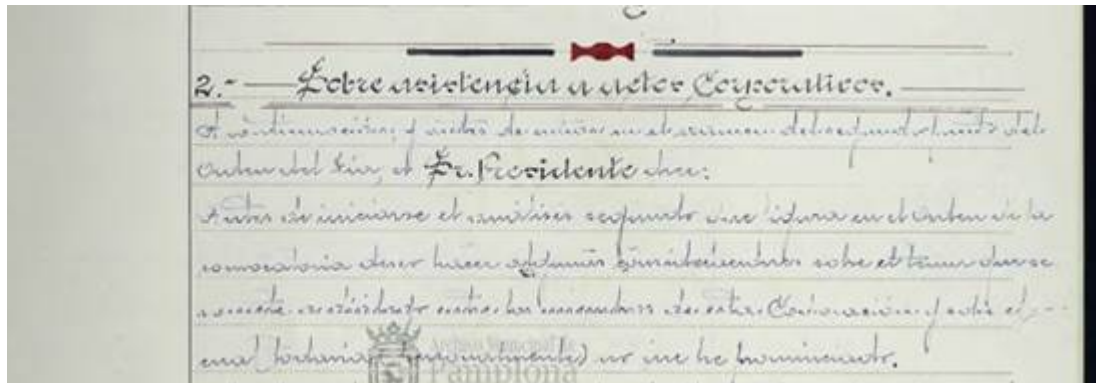 2.- Sobre asistencia a actos Corporativos.
A continuación, y antes de entrar en el examen del segundo punto del
Orden del Día, el Sr. Presidente dice:
Antes de iniciarse el análisis segundo que figura en el Orden de la
convocatoria deseo hacer algunas consideraciones sobre el tema que se
comenta entre los miembros de esta Corporación y sobre el
cual todavía (personalmente) no me he pronunciado.
Archivo Municipal de
Pamplona